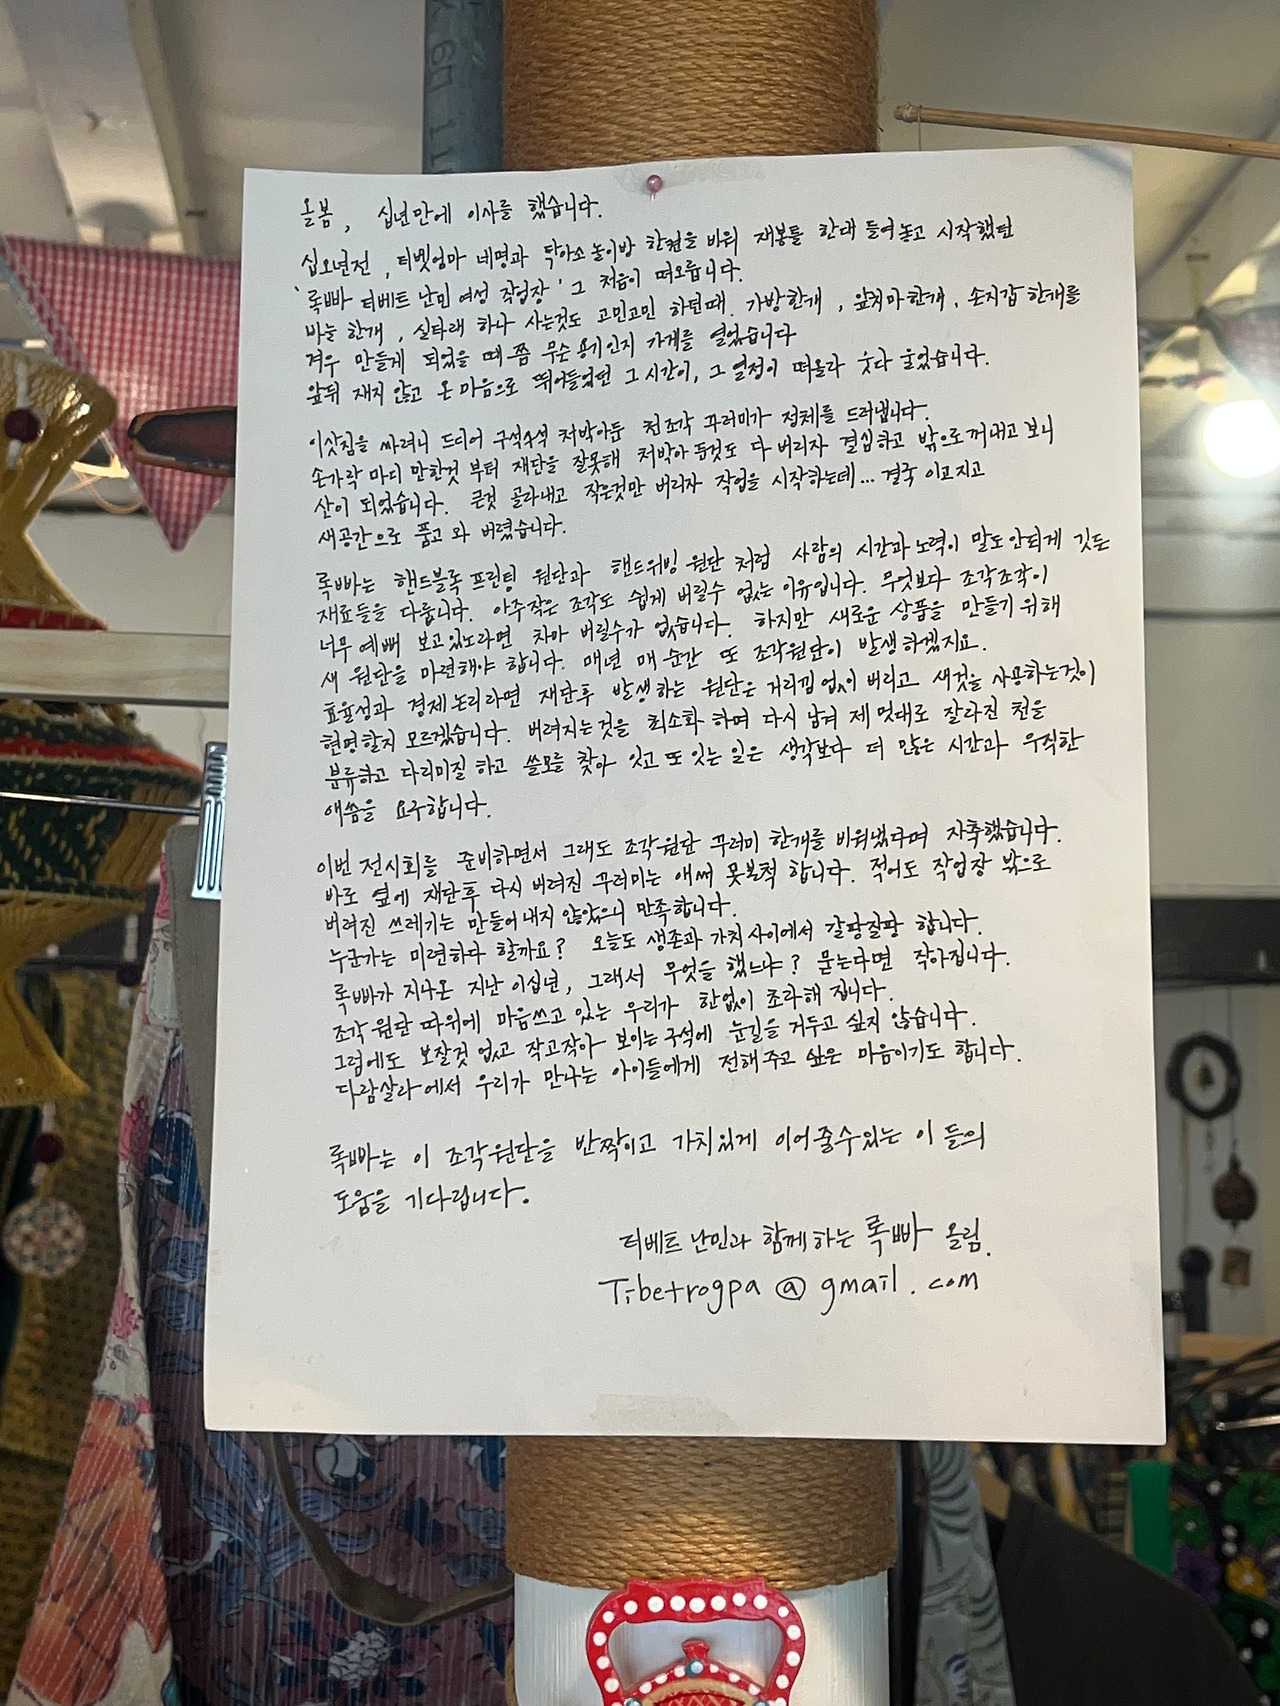 올봄, 십년만에 이사를 했습니다.
십오년전, 티벳엄마 네명과 탁아소 놀이방 한켠을 비워 재봉틀 한대 들여놓고 시작했던
'록빠 티베트 난민 여성 작업장' 그 처음이 떠오릅니다.
바늘 한개, 실타래 하나 사는것도 고민고민 하던때. 가방한개, 앞치마한개, 손지갑 한개를
겨우 만들게 되었을 때쯤 무슨 용기인지 가게를 열었습니다
앞뒤 재지 않고 온 마음으로 뛰어들었던 그 시간이, 그 열정이 떠올라 웃다 울었습니다.
이삿짐을 싸려니 드디어 구석구석 처박아둔 천조각 꾸러미가 정체를 드러냅니다.
손가락 마디 만한것 부터 재단을 잘못해 처박아 둔것도 다 버리자 결심하고 밖으로 꺼내고 보니
산이 되었습니다. 큰것 골라내고 작은것만 버리자 작업을 시작하는데... 결국 이고지고
새공간으로 품고 와 버렸습니다.
록빠는 핸드블록 프린팅 원단과 핸드위빙 원단 처럼 사람의 시간과 노력이 말도안되게 깃든
재료들을 다룹니다. 아주작은 조각도 쉽게 버릴수 없는 이유입니다. 무엇보다 조각조각이
너무 예뻐 보고있노라면 차마 버릴수가 없습니다. 하지만 새로운 상품을 만들기 위해
새 원단을 마련해야 합니다. 매년 매 순간 또 조각원단이 발생하겠지요.
효율성과 경제 논리라면 재단후 발생하는 원단은 거리낌 없이 버리고 새것을 사용하는것이
현명할지 모르겠습니다. 버려지는것을 최소화 하며 다시 남겨 제 멋대로 잘라진 천을
분류하고 다리미질 하고 쓸모를 찾아 잇고 또 잇는 일은 생각보다 더 많은 시간과 우직한
애씀을 요구합니다.
이번 전시회를 준비하면서 그래도 조각원단 꾸러미 한개를 비워냈다며 자축했습니다.
바로 옆에 재단후 다시 버려진 꾸러미는 애써 못본척 합니다. 적어도 작업장 밖으로
버려진 쓰레기는 만들어내지 않았으니 만족합니다.
누군가는 미련하다 할까요? 오늘도 생존과 가치 사이에서 갈팡질팡 합니다.
록빠가 지나온 지난 이십년, 그래서 무엇을 했느냐? 묻는다면 작아집니다.
조각 원단 따위에 마음쓰고 있는 우리가 한없이 초라해 집니다.
그럼에도 보잘것 없고 작고작아 보이는 구석에 눈길을 거두고 싶지 않습니다.
다람살라에서 우리가 만나는 아이들에게 전해주고 싶은 마음이기도 합니다.
록빠는 이 조각원단을 반짝이고 가치있게 이어줄수있는 이 들의
도움을 기다립니다.
티베트 난민과 함께하는 록빠 올림.
Tibetrogpa@gmail.com